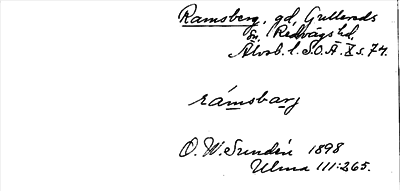 Ramsberg, gd, Grellereds
sn, Redvägs hd,
Älvsb. l. S.O.Ä. X s. 74.
rámsbarg
O. W. Sundén 1898
Ulma 111:265.